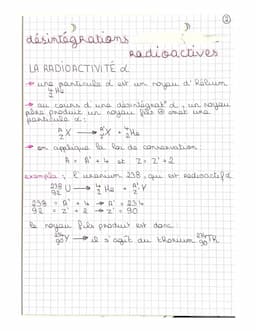 ①
désintégrations
radioactives
LA RADIOACTIVITÉ α
→ une particule α est un noyau d'Hélium
⁴₂He
→ au cours d'une désintégrat° α, un noyau
père produit un noyau fils et une
particule α :
ᴬ_Z X → ᴬ'_Z' X + ⁴₂He
→ on applique la loi de conservation :
A = A' + 4 et Z = Z' + 2
exemple : l'uranium 238, qui est radioactif α
²³⁸₉₂U → ⁴₂He + ᴬ'_Z' Y
238 = A' + 4 → A' = 234
92 = Z' + 2 → Z' = 90
le noyau fils produit est donc :
²³⁴₉₀Y → il s'agit du thorium ²³⁴₉₀Th